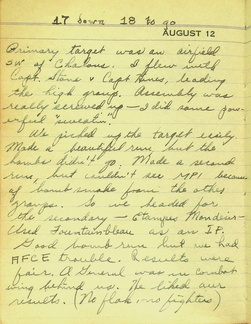 47 down 18 to go
AUGUST 12
Primary target was an airfield
SW of Chalons. I flew with
Capt. Stone & Capt Hines, leading
the high group. Assembly was
really screwed up - I did some pow-
erful "sweatin"
We picked up the target easily
Made a beautiful run, but the
bombs didn't go. Made a second
run, but couldn't see MPI because
of bomb smoke from the other
groups. So we headed for
the secondary - Etampes Mondesir-
Used Fountainbleau as an IP.
Good bomb run but we had
AFCE trouble. Results were
fair. A General was in combat
wing behind us. He liked our
results. (No flak, no fighters)